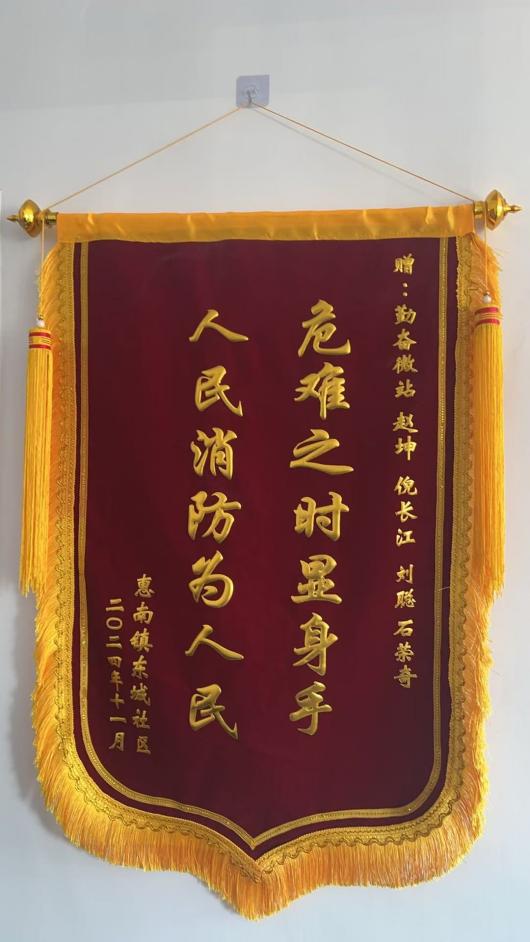 赠：勤奋微站 赵坤 倪长江 刘聪 石荣奇
危难之时显身手
人民消防为人民
惠南镇东城社区
二〇二四年十一月